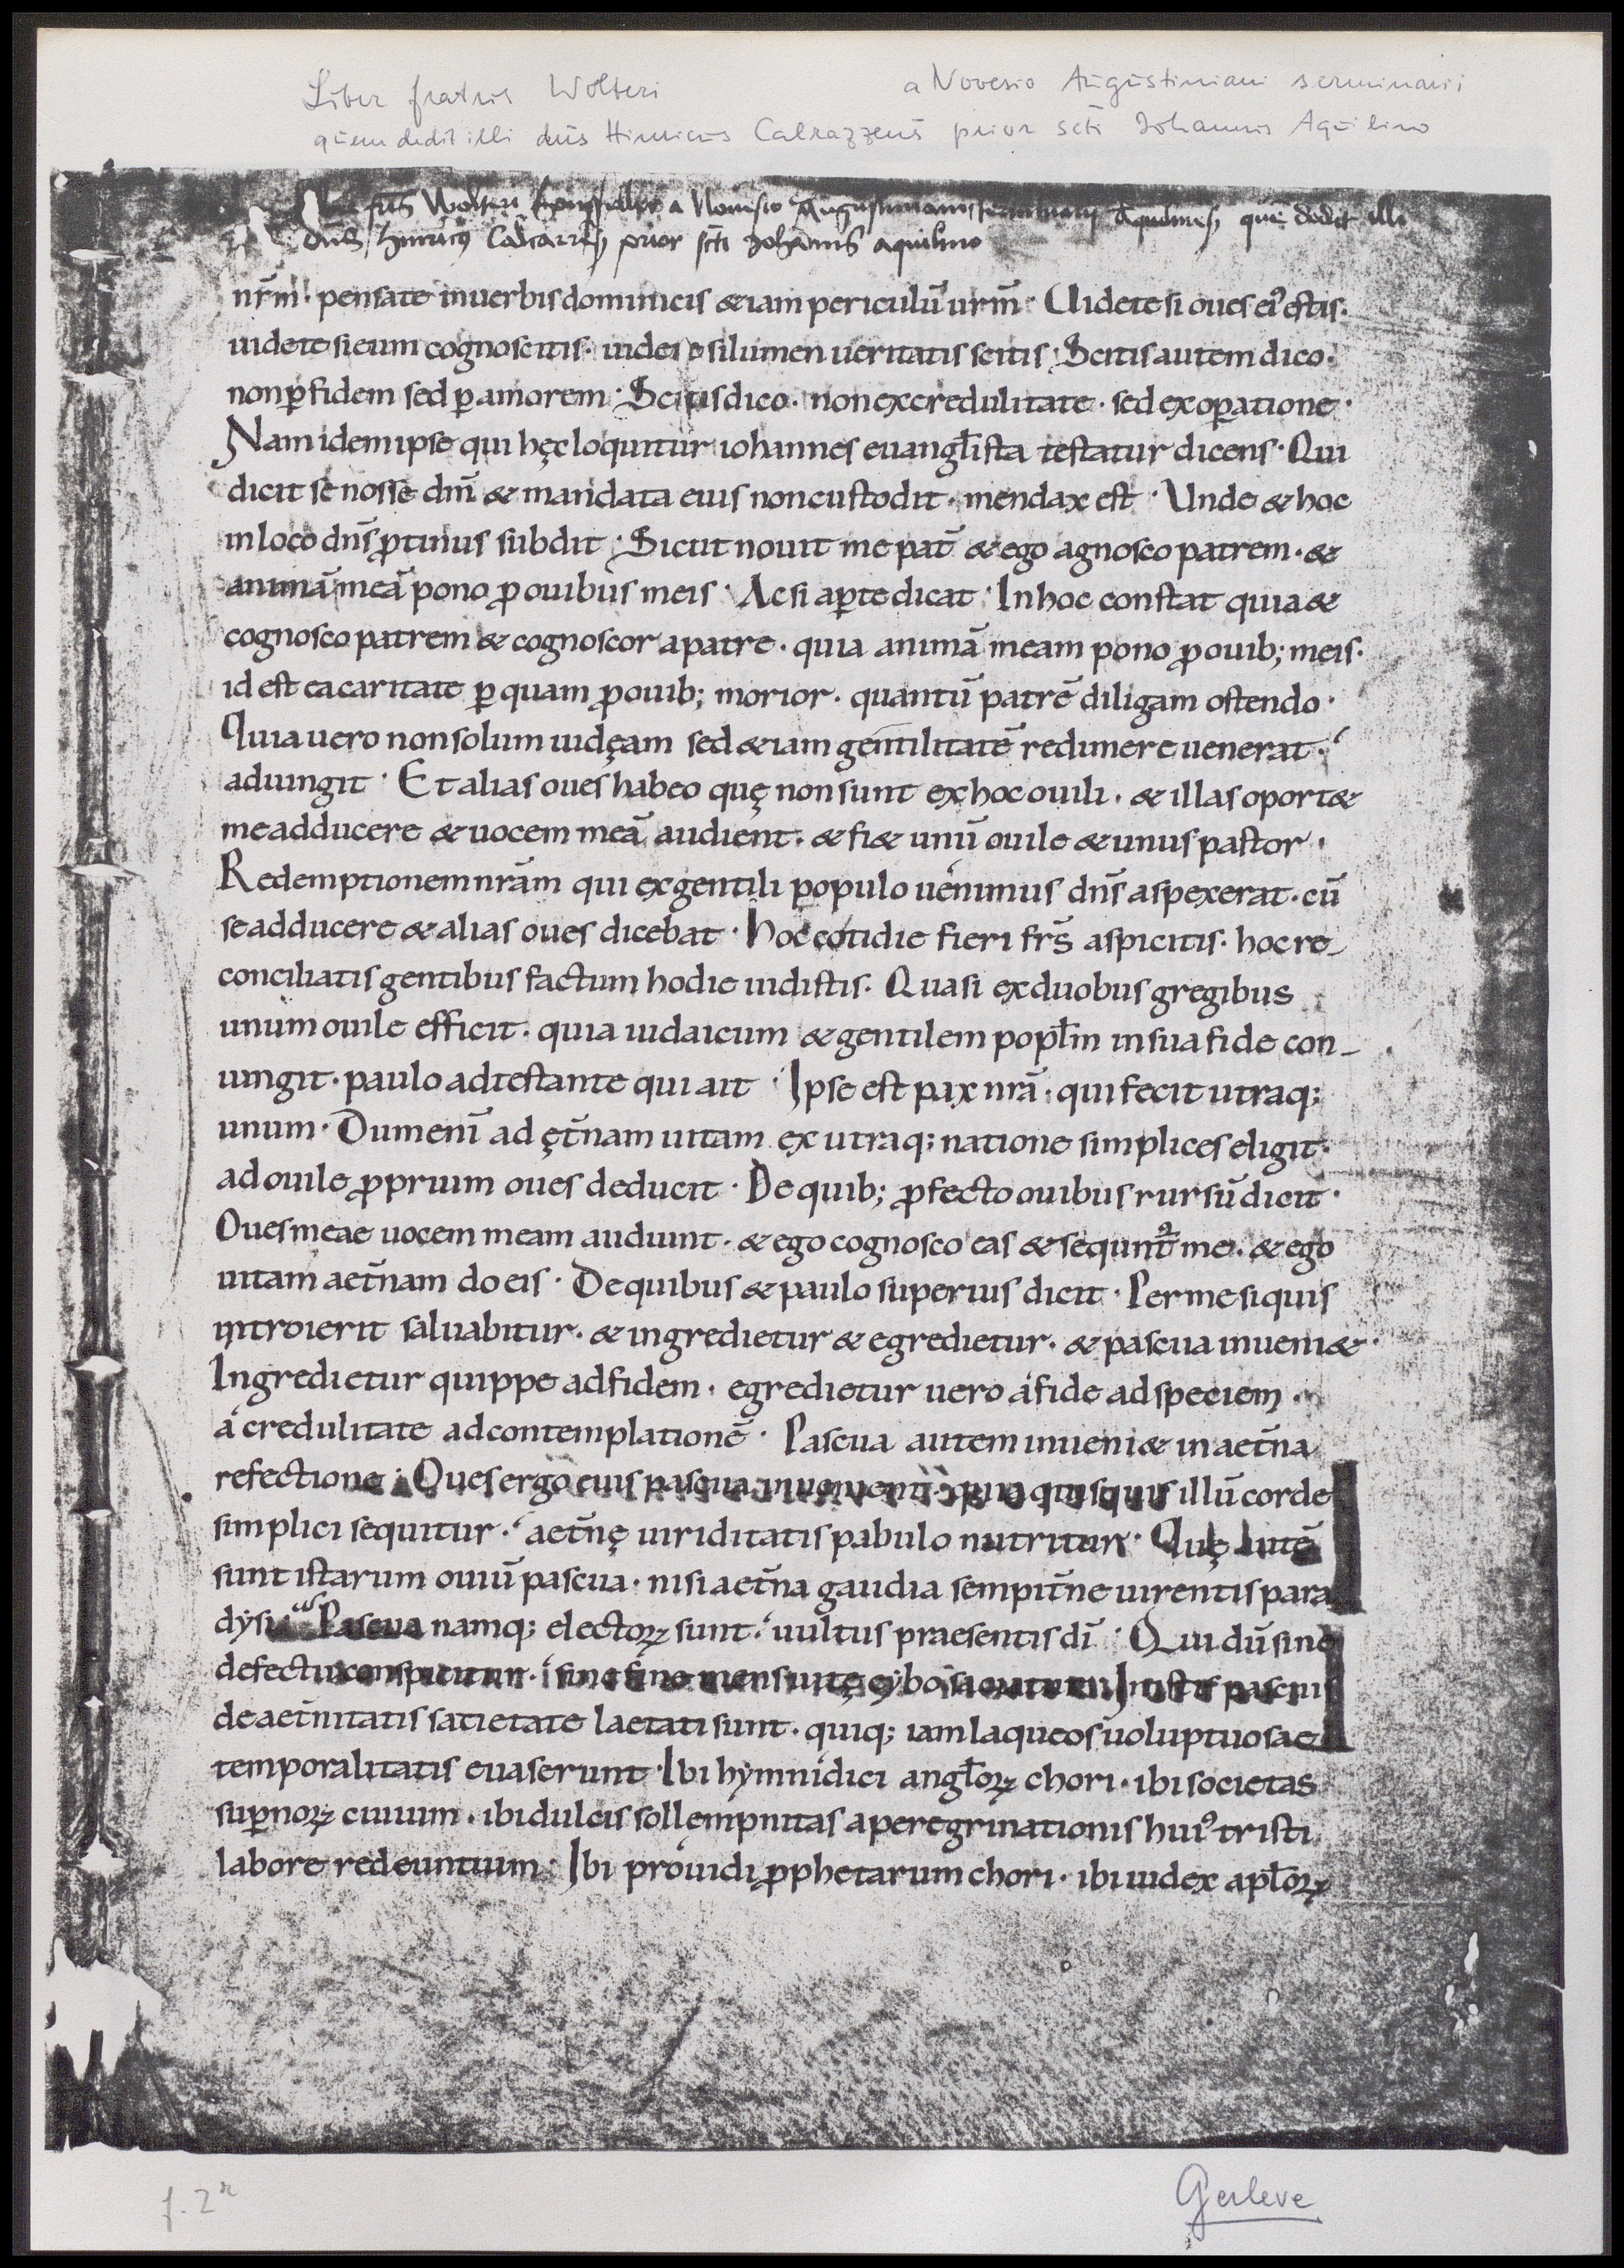 Liber fratris Wolteri a Novesio Augustiniani serminarii
quem dedit illi dn̄s Hinricus Calrazzens prior scti Johannis Aquilino
fr̄is Wolteri a Nouesio Augustiniani terminarij Aquilineñ quē dedit illi
dn̄s hinricus Calcarreñ prior scti Johannis aquilino
nr̄m · pensate inuerbisdominicis &iam periculū ur̄m · Uidete si oues eiꝰ estis ·
uidete sieum cognoscitis · uidete silumen ueritatis scitis · Scitisautem dico ·
nonꝑfidem sed ꝑ amorem · Scitisdico · nonexcredulitate · sed exoꝑatione ·
Nam idemipse qui hęcloquitur iohannes euangłista testatur dicens · Qui
dicit se nosse dm̄ & mandata eius noncustodit · mendax est · Unde & hoc
inloco dn̄s ꝓtinus subdit · Sicut nouit me pat̄ & ego agnosco patrem · &
animā meā pono ꝓ ouibus meis · Ac si aꝑte dicat · Inhoc constat quia &
cognosco patrem & cognoscor apatre · quia animā meam pono ꝓ ouib; meis ·
id est eacaritate ꝑ quam ꝓ ouib; morior · quantū patrē diligam ostendo ·
Quia uero nonsolum iudęam sed &iam gentilitatē redimere uenerat ·
adiungit · Et alias oues habeo quę non sunt exhocouili · & illas oport&
meadducere & uocem meā audient · & fi& unū ouile & unus pastor ·
Redemptionemnrām qui exgentili populo uenimus dn̄s aspexerat · cū
seadducere & alias oues dicebat · hoc cotidie fieri fr̄s aspicitis · hocre-
conciliatis gentibus factum hodie uidistis · Quasi exduobus gregibus
unum ouile efficit · quia iudaicum & gentilem popłm insuafide con-
iungit · paulo adtestante qui ait · Ipse est pax nrā · qui fecit utraq;
unum · Dumenī ad ęt̄nam uitam ex utraq; natione simplices eligit ·
adouile ꝓprium oues deducit · De quib; ꝓfecto ouibus rursū dicit ·
Ouesmeae uocem meam audiunt · & ego cognosco eas & sequnt᷑ me · & ego
uitam aet̄nam do eis · Dequibus & paulo superius dicit · Per me siquis
introierit saluabitur · & ingredietur & egredietur · & pascua inueni& ·
Ingredietur quippe adfidem · egredietur uero afide adspeciem ·
a credulitate adcontemplationē · Pascua autem inueni& inaet̄na
refectione · Ouesergo eius pascua inuenient · quia quisquis illū corde
simplici sequitur · aet̄nę uiriditatis pabulo nutritur · Quę autē
sunt istarum ouiū pascua · nisi aet̄na gaudia sempit̄ne uirentis para
dysi · Pascua namq; electoꝝ sunt · uultus praesentis dī · Qui dū sine
defectu conspicitur · sine fine mens uitę cybo saciatur · Inistis pascuis
deaet̄nitatis satietate laetati sunt · quiq; iam laqueos uoluptuosae
temporalitatis euaserunt · Ibi hymnidici angłoꝝ chori · ibi societas
suꝑnoꝝ ciuium · ibi dulcis sollempnitas a peregrinationis huiꝰ tristi
labore redeuntium · Ibi prouidi ꝓphetarum chori · ibi iudex apłoꝝ
f. 2r
Gerleve